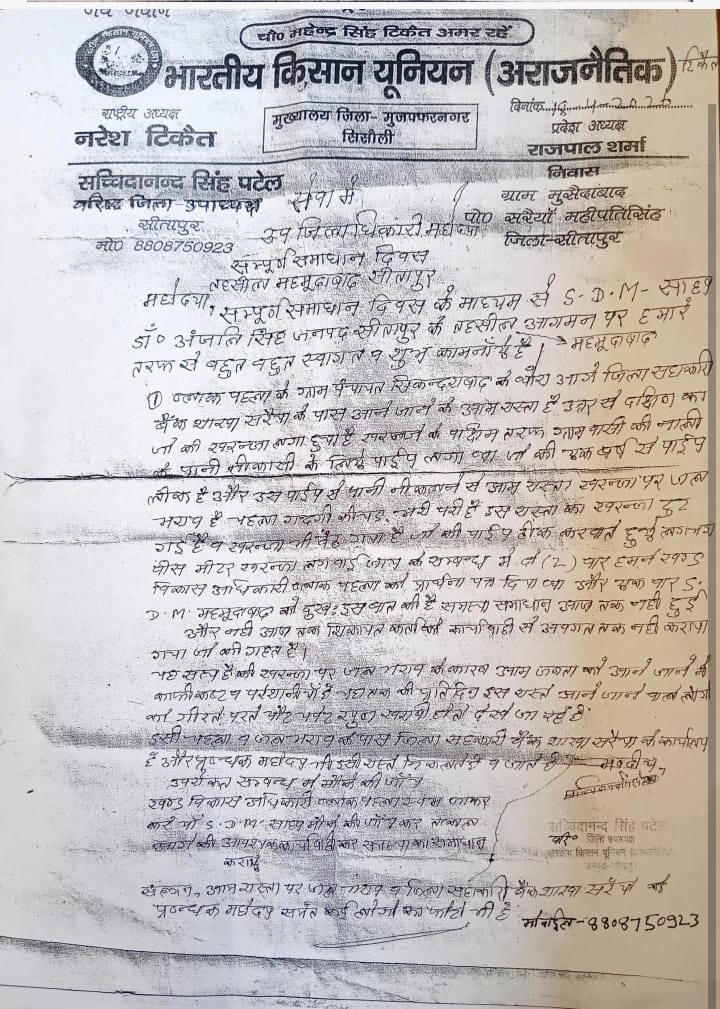 जय जवान
चौ० महेन्द्र सिंह टिकैत अमर रहें
भारतीय किसान यूनियन (अराजनैतिक) टिकैत
दिनांक
राष्ट्रीय अध्यक्ष
नरेश टिकैत
मुख्यालय जिला- मुजफ्फरनगर
सिसौली
प्रदेश अध्यक्ष
राजपाल शर्मा
सच्चिदानन्द सिंह पटेल
वरिष्ठ जिला-उपाध्यक्ष
सीतापुर
मो० 8808750923
निवास
ग्राम मुसैदाबाद
पो० सरैयाँ महीपतिसिंह
जिला-सीतापुर
सेवा में
उप जिलाधिकारी महोदया
सम्पूर्ण समाधान दिवस
तहसील महमूदाबाद सीतापुर
महोदया, सम्पूर्ण समाधान दिवस के माध्यम से S.D.M- साहब
डॉ० अंजलि सिंह जनपद सीतापुर के तहसील आगमन पर हमारे
महमूदाबाद
तरफ से बहुत बहुत स्वागत व शुभ कामनाँऐ है।
① ब्लाक पहला के ग्राम पंचायत सिकन्दराबाद के आगे जिला सहकारी
बैंक शाखा सरैया के पास आने जाने के आम रास्ता है उत्तर से दक्षिण का
जो की खरन्जा लगा हुआ है खरन्जे के पश्चिम तरफ ग्राम वासी की नाली
के पानी नीकासी के लिये पाईप लगा था जो की एक वर्ष से पाईप
लीक है और उस पाईप से पानी नीकलने से आम रास्ता खरन्जा पर जल
भराव है गदगी कीचड़ भरी परी है इस रास्ता का खरन्जा टुट
गई है व खरन्जा भी बैठ गया है जो की पाईप ठीक करवाते हुये लगभग
बीस मीटर खरन्जा के सम्बन्ध में दो (2) बार हमने खण्ड
विकास अधिकारी ब्लाक पहला को प्रार्थना पत्र दिया था और एक बार S.
D.M. महमूदाबाद को दुख: इस बात की है समस्या समाधान आज तक नही हुई
और नही आज तक शिकायत कर्ता को कार्यवाही से अवगत तक नही कराया
गया जो की गलत है।
यह सत्य है की खरन्जा पर जल भराव के कारण आम जनता को आने जाने में
काफी कष्ट व परेशानी है यहा तक की प्रति दिन इस रास्ते आने जाने वाले लोग
को गीरते परते चोट चपेट खराबी होते देखे जा रहे हैं
इसी व जल भराव के पास जिला सहकारी बैंक शाखा सरैया के कार्यालय
है और प्रबन्धक महोदय भी इसी रास्ते निकलते है व जाते है भवदीय
उपरोक्त सम्बन्ध में मौके की जाँच
खण्ड विकास अधिकारी ब्लाक पहला स्वयम जाकर
करें या S.D.M. साहब मौके की जाँच कर
आवश्यक कार्यवाही कर समस्या का समाधान
करायें
सच्चिदानन्द सिंह पटेल
वरि० जिला उपाध्यक्ष
भारतीय किसान यूनियन
जनपद-सीतापुर
संलग्न, आम रास्ता पर जल भराव व जिला सहकारी बैंक शाखा सरैया के
प्रबन्धक महोदय समेत कई लोगो का फोटो भी है
मोबाईल-8808750923